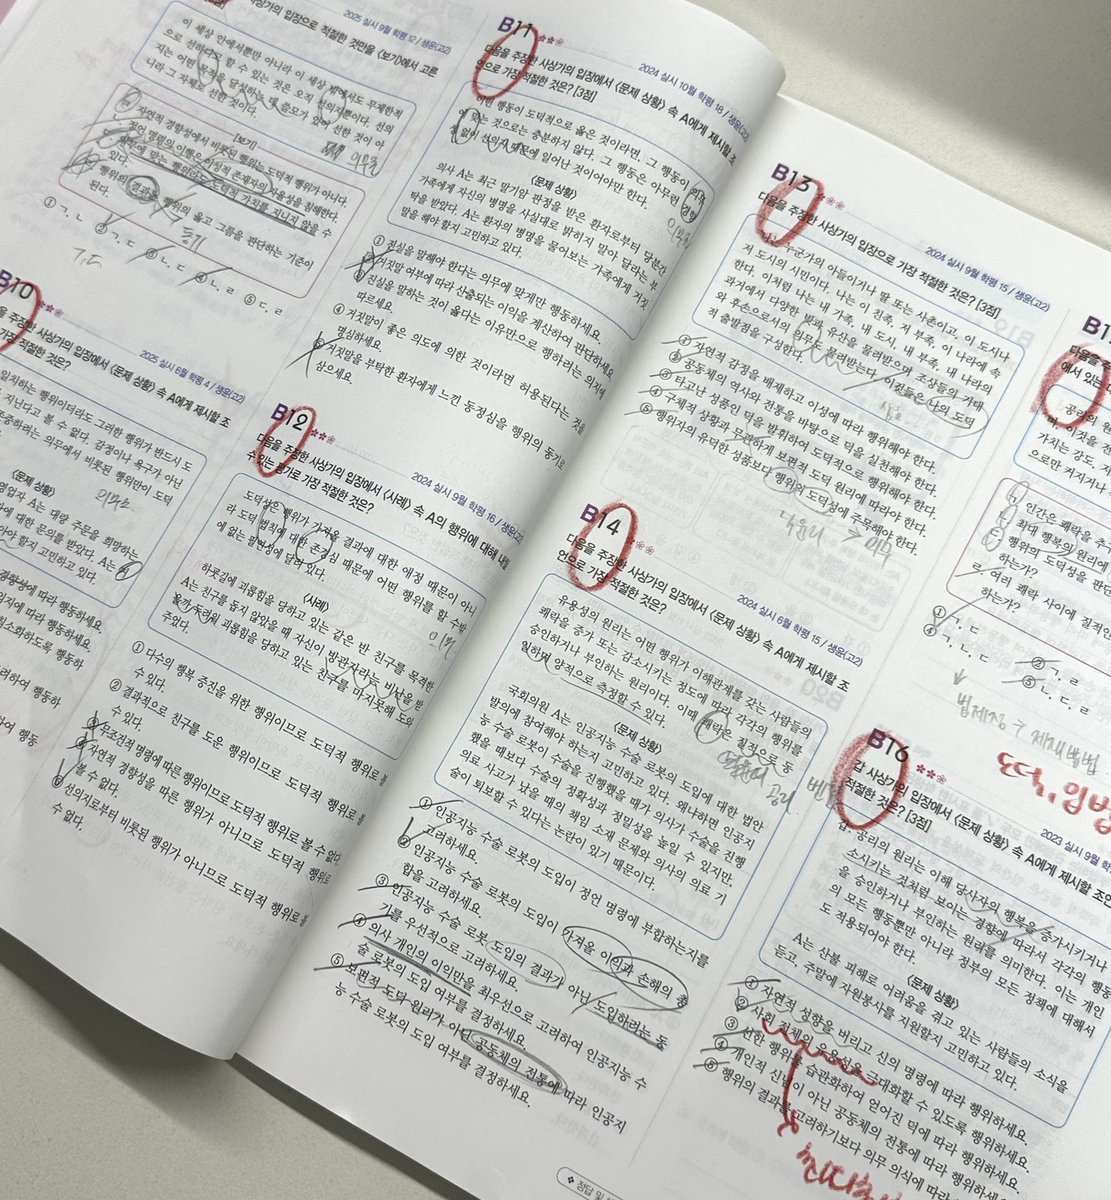 2025 실시 9월 학평 12 / 생윤(고2)
입장으로 적절한 것만을 <보기>에서 고른
이 세상 안에서뿐만 아니라 이 세상 밖에서도 무제한적
으로 선하다고 할 수 있는 것은 오직 선의지뿐이다. 선의
지는 어떤 목적을 달성하는 데 쓸모가 있어 선한 것이 아
니라 그 자체로 선한 것이다.
[보기]
자연적 경향성에서 비롯된 행위는 도덕적 행위가 아니다.
정언 명령의 이행은 이성적 존재자의 자율성을 침해한다.
의무에 맞는 행위라도 도덕적 가치를 지니지 않을 수
있다.
행위의 결과는 행위의 옳고 그름을 판단하는 기준이
된다.
동기
① ㄱ, ㄴ ② ㄱ, ㄷ ③ ㄴ, ㄷ ④ ㄴ, ㄹ ⑤ ㄷ, ㄹ
ㄱ, ㄷ
B10
2025 실시 6월 학평 4 / 생윤(고2)
입장에서 <문제 상황> 속 A에게 제시할 조
적절한 것은?
일치하는 행위이더라도 그러한 행위가 반드시 도
지닌다고 볼 수 없다. 감정이나 욕구가 아닌
존중하려는 의무에서 비롯된 행위만이 도덕
<문제 상황>
영업자 A는 대량 주문을 희망하는
에 대한 문의를 받았다. A는
할지 고민하고 있다.
경향성에 따라 행동하세요.
에 따라 행동하세요.
최소화하도록 행동하
고려하여 행동하
하여 행동
B11
2024 실시 10월 학평 18 / 생윤(고2)
다음을 주장한 사상가의 입장에서 <문제 상황> 속 A에게 제시할 조
언으로 가장 적절한 것은? [3점]
어떤 행동이 도덕적으로 옳은 것이라면, 그 행동이
에 맞는 것으로는 충분하지 않다. 그 행동은 아무런
없이 선의지 때문에 일어난 것이어야만 한다.
<문제 상황>
의사 A는 최근 말기암 판정을 받은 환자로부터 당분간
가족에게 자신의 병명을 사실대로 밝히지 말아 달라는 부
탁을 받았다. A는 환자의 병명을 물어보는 가족에게 거짓
말을 해야 할지 고민하고 있다.
① 진실을 말해야 한다는 의무에 맞게만 행동하세요.
② 거짓말 여부에 따라 산출되는 이익을 계산하여 판단하세요.
③ 진실을 말하는 것이 옳다는 이유만으로 행하려는 의지에
따르세요.
④ 거짓말이 좋은 의도에 의한 것이라면 허용된다는 것을
명심하세요.
⑤ 거짓말을 부탁한 환자에게 느낀 동정심을 행위의 동기로
삼으세요.
B12
2024 실시 9월 학평 16 / 생윤(고2)
다음을 주장한 사상가의 입장에서 <사례> 속 A의 행위에 대해 내릴
수 있는 평가로 가장 적절한 것은?
도덕성은 행위가 가져올 결과에 대한 애정 때문이 아니
라 도덕 법칙에 대한 존경심 때문에 어떤 행위를 할 수밖
에 없는 필연성에 달려 있다.
<사례>
하굣길에 괴롭힘을 당하고 있는 같은 반 친구를 목격한
A는 친구를 돕지 않았을 때 자신이 방관자라는 비난을 받
을까 두려워 괴롭힘을 당하고 있는 친구를 마지못해 도와
주었다.
① 다수의 행복 증진을 위한 행위이므로 도덕적 행위로 볼
수 있다.
② 결과적으로 친구를 도운 행위이므로 도덕적 행위로 볼
수 있다.
③ 무조건적 명령에 따른 행위이므로 도덕적 행위로 볼 수 없다.
④ 자연적 경향성을 따른 행위가 아니므로 도덕적 행위로
볼 수 없다.
⑤ 선의지로부터 비롯된 행위가 아니므로 도덕적 행위로 볼
수 없다.
B13
2024 실시 9월 학평 15 / 생윤(고2)
다음을 주장한 사상가의 입장으로 가장 적절한 것은? [3점]
나는 누군가의 아들이거나 딸 또는 사촌이고, 이 도시나
저 도시의 시민이다. 나는 이 친족, 저 부족, 이 나라에 속
한다. 이처럼 나는 내 가족, 내 도시, 내 부족, 내 나라의
과거에서 다양한 빚과 유산을 물려받으며 조상들의 기대
와 후손으로서의 의무도 물려받는다. 이것들은 나의 도덕
적 출발점을 구성한다.
① 자연적 감정을 배제하고 이성에 따라 행위해야 한다.
② 공동체의 역사와 전통을 바탕으로 덕을 실천해야 한다.
③ 타고난 성품인 덕을 발휘하여 도덕적으로 행위해야 한다.
④ 구체적 상황과 무관하게 보편적 도덕 원리에 따라야 한다.
⑤ 행위자의 유덕한 성품보다 행위의 도덕성에 주목해야 한다.
B14
2024 실시 6월 학평 15 / 생윤(고2)
다음을 주장한 사상가의 입장에서 <문제 상황> 속 A에게 제시할 조
언으로 가장 적절한 것은?
유용성의 원리는 어떤 행위가 이해관계를 갖는 사람들의
쾌락을 증가 또는 감소시키는 정도에 따라 각각의 행위를
승인하거나 부인하는 원리이다. 이때 쾌락은 질적으로 동
일하며 양적으로 측정할 수 있다.
<문제 상황>
국회의원 A는 인공지능 수술 로봇의 도입에 대한 법안
발의에 참여해야 하는지 고민하고 있다. 왜냐하면 인공지
능 수술 로봇이 수술을 진행했을 때가 의사가 수술을 진행
했을 때보다 수술의 정확성과 정밀성을 높일 수 있지만,
의료 사고가 났을 때의 책임 소재 문제와 의사의 의료 기
술이 퇴보할 수 있다는 논란이 있기 때문이다.
① 인공지능 수술 로봇의 도입이 정언 명령에 부합하는지를
고려하세요.
② 인공지능 수술 로봇의 도입이 가져올 이익과 손해의 총
합을 고려하세요.
③ 인공지능 수술 로봇 도입의 결과가 아닌 도입하려는 동
기를 우선적으로 고려하세요.
④ 의사 개인의 이익만을 최우선으로 고려하여 인공지능 수
술 로봇의 도입 여부를 결정하세요.
⑤ 보편적 도덕 원리가 아닌 공동체의 전통에 따라 인공지
능 수술 로봇의 도입 여부를 결정하세요.
공리
인간은 쾌락을 추구
최대 행복의 원리에
행위의 도덕성을 판단
하는가?
ㄹ. 여러 쾌락 사이에 질적인
하는가?
① ㄱ, ㄷ ② ㄱ, ㄹ
④ ㄱ, ㄴ, ㄷ ⑤ ㄴ, ㄷ, ㄹ
B16
2023 실시 9월 학평
갑 사상가의 입장에서 <문제 상황> 속 A에게 제시할 조언
적절한 것은? [3점]
갑: 공리의 원리는 이해 당사자의 행복을 증가시키거나
소시키는 것처럼 보이는 경향에 따라서 각각의 행동
을 승인하거나 부인하는 원리를 의미한다. 이는 개인
의 모든 행동뿐만 아니라 정부의 모든 정책에 대해서
도 적용되어야 한다.
<문제 상황>
A는 산불 피해로 어려움을 겪고 있는 사람들의 소식을
듣고, 주말에 자원봉사를 지원할지 고민하고 있다.
① 자연적 성향을 버리고 신의 명령에 따라 행위하세요.
② 사회 전체의 유용성을 극대화할 수 있도록 행위하세요.
③ 선한 행위를 습관화하여 얻어진 덕에 따라 행위하세요.
④ 개인적 신념이 아닌 공동체의 전통에 따라 행위하세요.
⑤ 행위의 결과를 고려하기보다 의무 의식에 따라 행위하세
정답 및